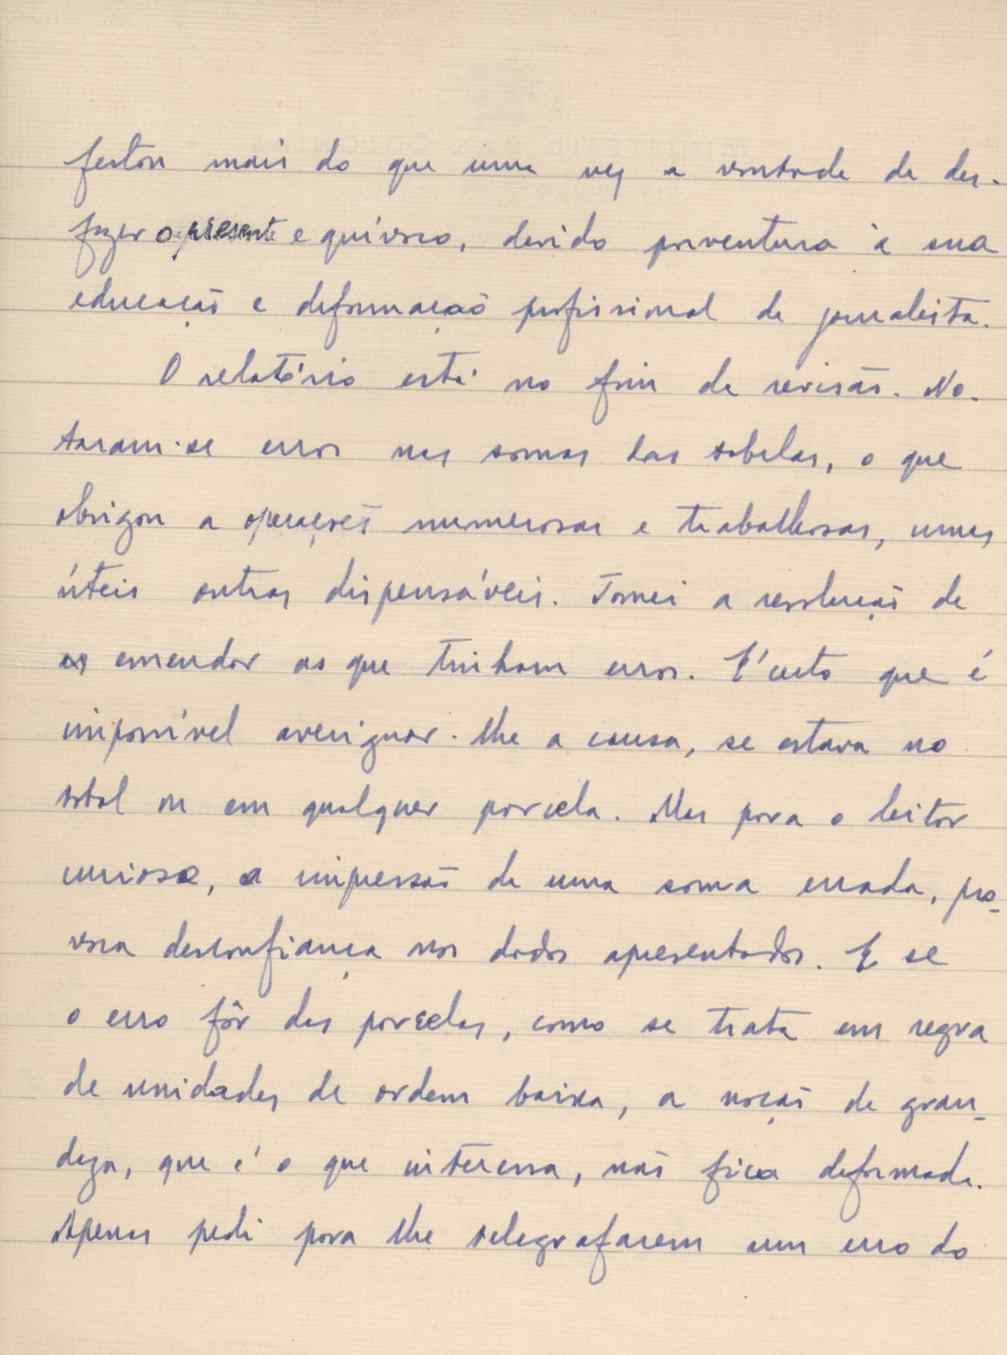 festou mais do que uma vez a vontade de des-
fazer o presente equívoco, devido porventura à sua
educação e deformação profissional de jornalista.
O relatório está no fim da revisão. No-
taram-se erros nas somas das tabelas, o que
obrigou a operações numerosas e trabalhosas, umas
úteis outras dispensáveis. Tomei a resolução de
emendar as que tinham erros. É certo que é
impossível averiguar-lhe a causa, se estava no
total ou em qualquer parcela. Mas para o leitor
curioso, a impressão de uma soma errada, pro-
voca desconfiança nos dados apresentados. E se
o erro fôr das parcelas, como se trata em regra
de unidades de ordem baixa, a noção de gran-
deza, que é o que interessa, não fica deformada.
Apenas pedi para lhe telegrafarem um erro do